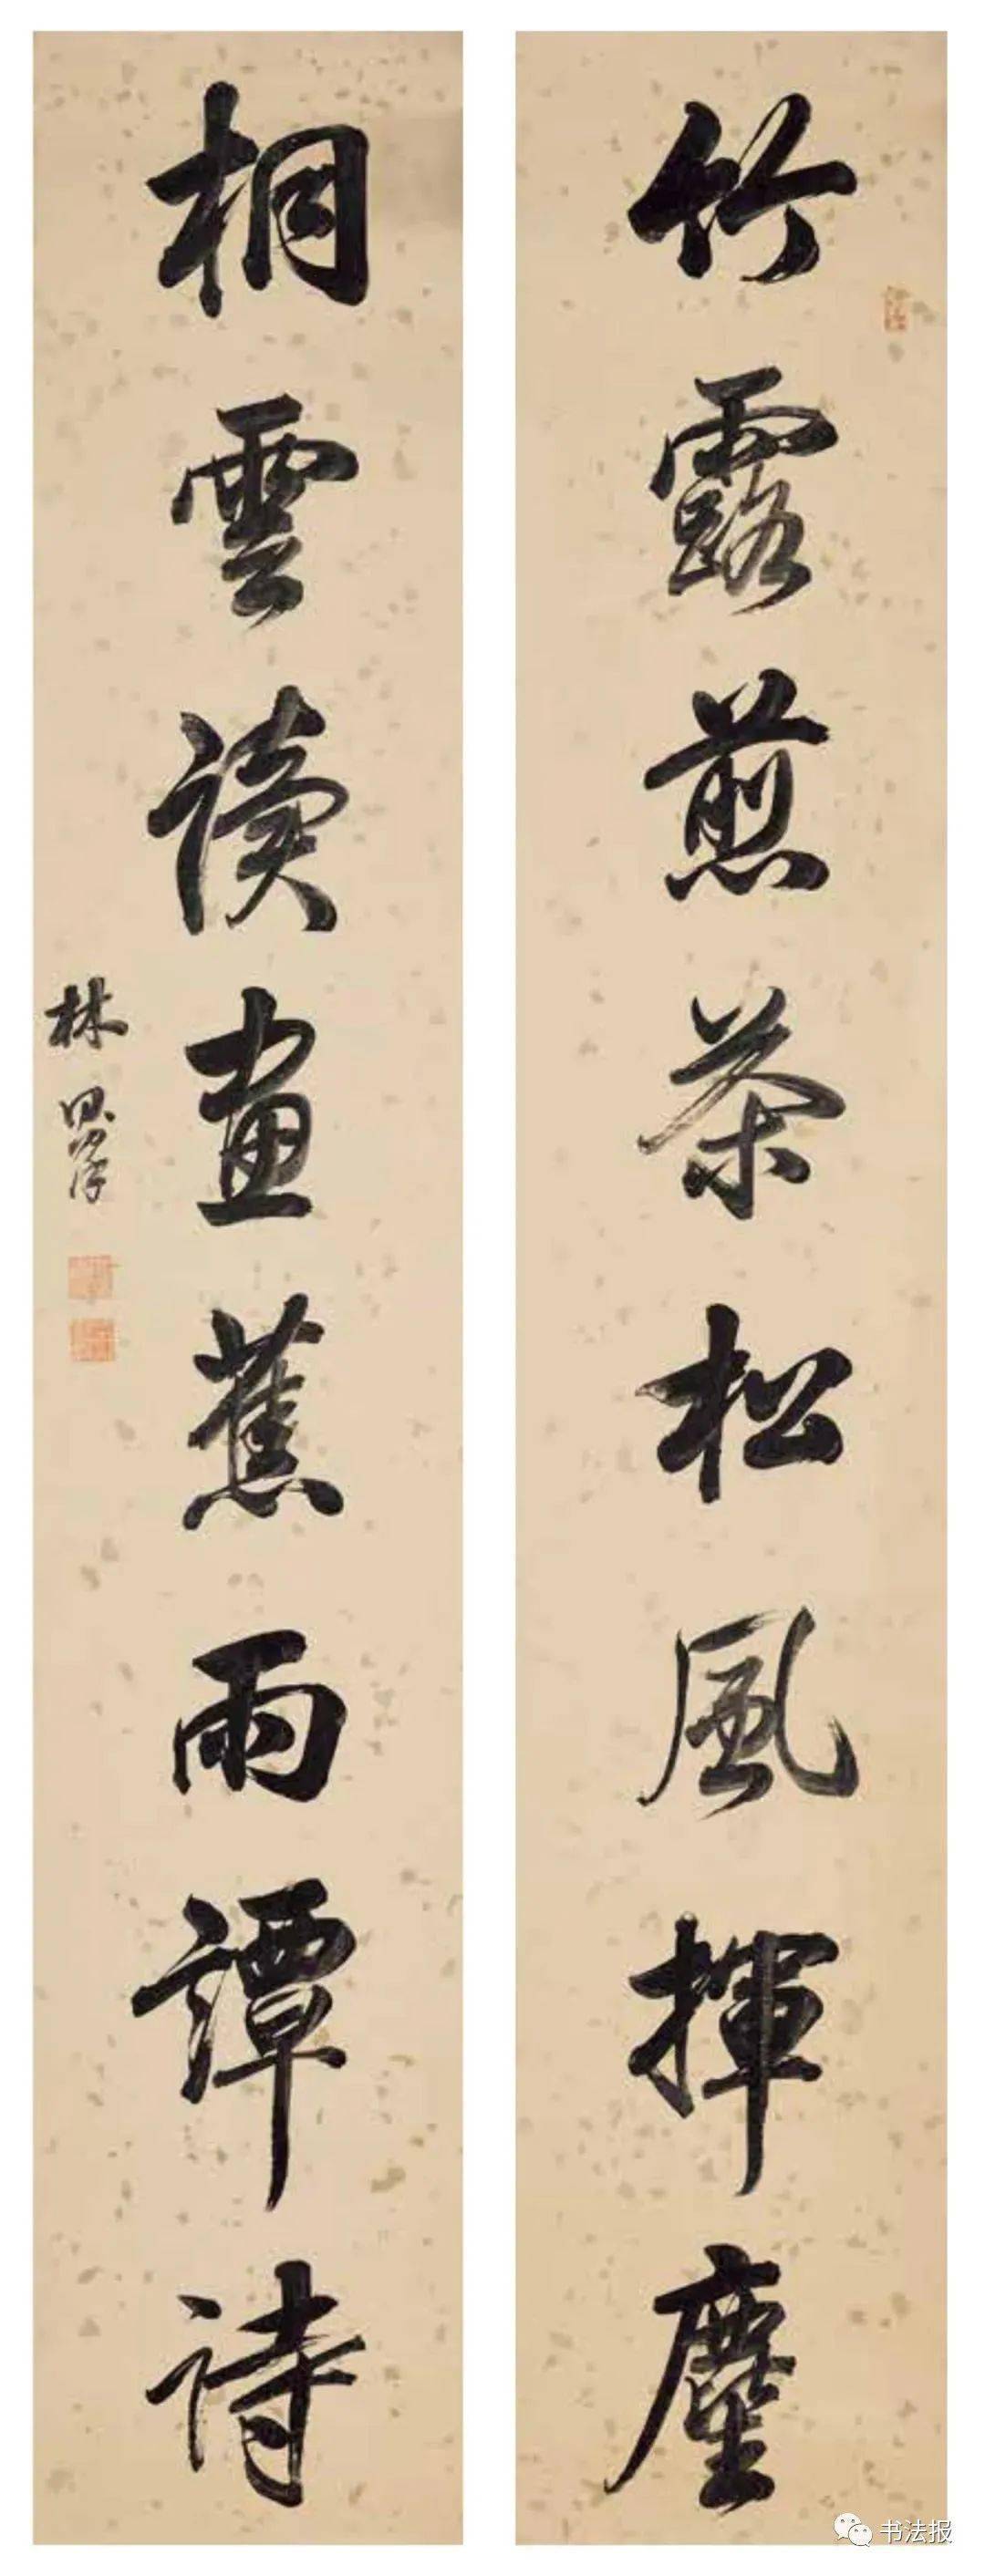 竹露煎茶松風揮麈
桐雲讀畫蕉雨譚詩
林則徐
书法报